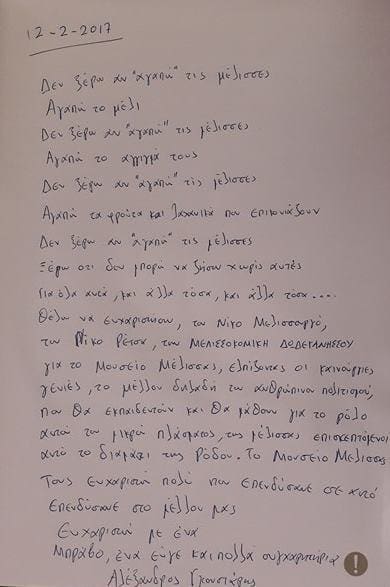 12-2-2017
Δεν ξέρω αν "αγαπώ" τις μέλισσες
Αγαπώ το μέλι
Δεν ξέρω αν "αγαπώ" τις μέλισσες
Αγαπώ το άγγιγμά τους
Δεν ξέρω αν "αγαπώ" τις μέλισσες
Αγαπώ τα φρούτα και λαχανικά που επικονιάζουν
Δεν ξέρω αν "αγαπώ" τις μέλισσες
Ξέρω οτι δεν μπορώ να ζήσω χωρίς αυτές
Για όλα αυτά, και άλλα τόσα, και άλλα τόσα....
Θέλω να ευχαριστήσω, τον Νίκο Μελισσαργό,
τον Νίκο Ρέτσα, την ΜΕΛΙΣΣΟΚΟΜΙΚΗ ΔΩΔΕΚΑΝΗΣΟΥ
για το Μουσείο Μέλισσας, ελπίζοντας οι καινούργιες
γενιές, το μέλλον δηλαδή του ανθρώπινου πολιτισμού,
που θα εκπαιδευτούν και θα μάθουν για το ρόλο
αυτού του μικρού πλάσματος, της μέλισσας επισκεπτόμενοι
αυτό το διαμάτι της Ρόδου. Το Μουσείο Μέλισσας
Τους ευχαριστώ πολύ που επενδύσανε σε αυτό
Επενδύσανε στο μέλλον μας
Ευχαριστώ με ένα
Μπράβο, ένα εύγε και πολλά συγχαρητήρια
Αλέξανδρος